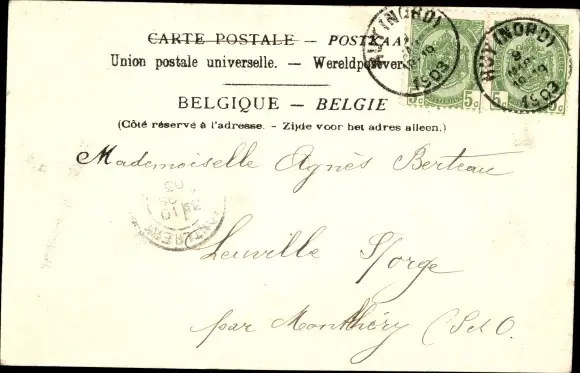 CARTE POSTALE — POSTKAA
Union postale universelle. — Wereldpostver
BELGIQUE — BELGIE
(Côté réservé à l'adresse. - Zijde voor het adres alleen.)
HUY (NORD)
1903
5c 5c
HUY (NORD)
9
1903
5c 5c
Mademoiselle Agnès Berteau
Leuville s/orge
par Monthéry (S et O.